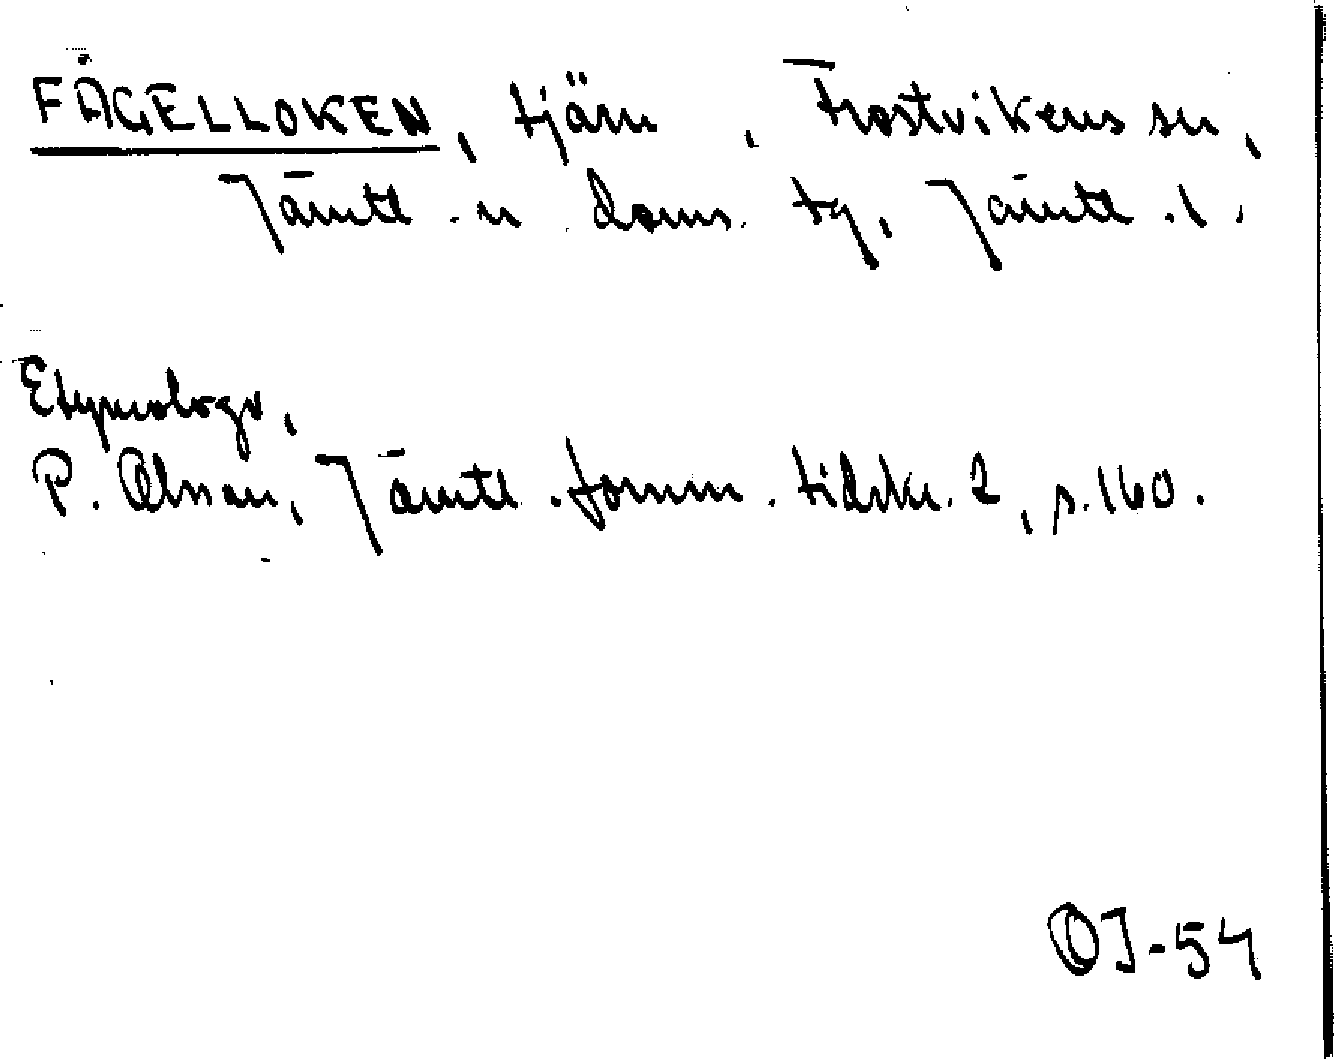 FÅGELLOKEN, tjärn, Frostvikens sn,
Jämtl. n doms. tg, Jämtl. l.
Etymologi,
P. Olsson, Jämtl. fornm. tidskr. 2, s. 160.
OJ-54